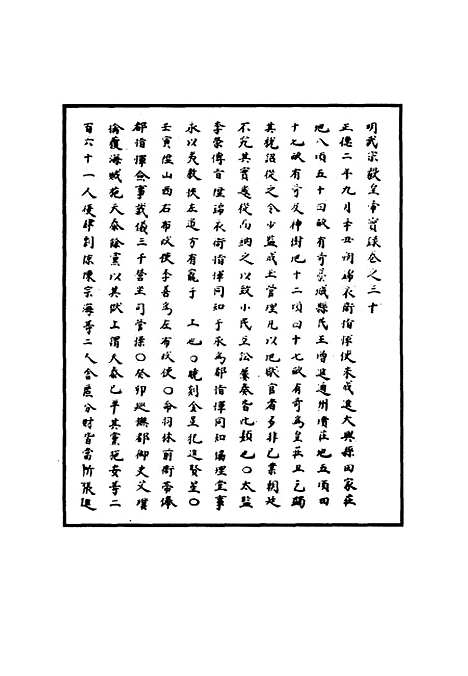 明武宗毅皇帝實録卷之三十
正德二年九月辛丑朔錦衣衛指揮使朱成進大興縣田家莊
地八頃五十四畝有奇吳城縣民王增進通州濆莊地五頃四
十七畝有奇及仲街地十二頃四十七畝有奇為皇莊且乞蠲
其税詔從之令少監戒土管理凡以地獻官者多非己業朝廷
不究其實遽從而納之以致小民立訟蓁奏皆此類也〇太監
李榮傳旨陞錦衣衛指揮同知于永為都指揮同知協理堂事
永以夷教侠左道方有寵于 上也〇曉刻金星犯進賢星〇
壬寅陞山西右布政使李善為左布政使〇命羽林前衛帶俸
都指揮僉事戴儀三千營坐司管操〇癸卯廵撫都御史艾璞
擒獲海賊苑天泰餘黨以其狀上謂天泰已平其黨苑安等二
百六十一人便肆剖除陳宗海等二人會㡳分財皆當斬張進